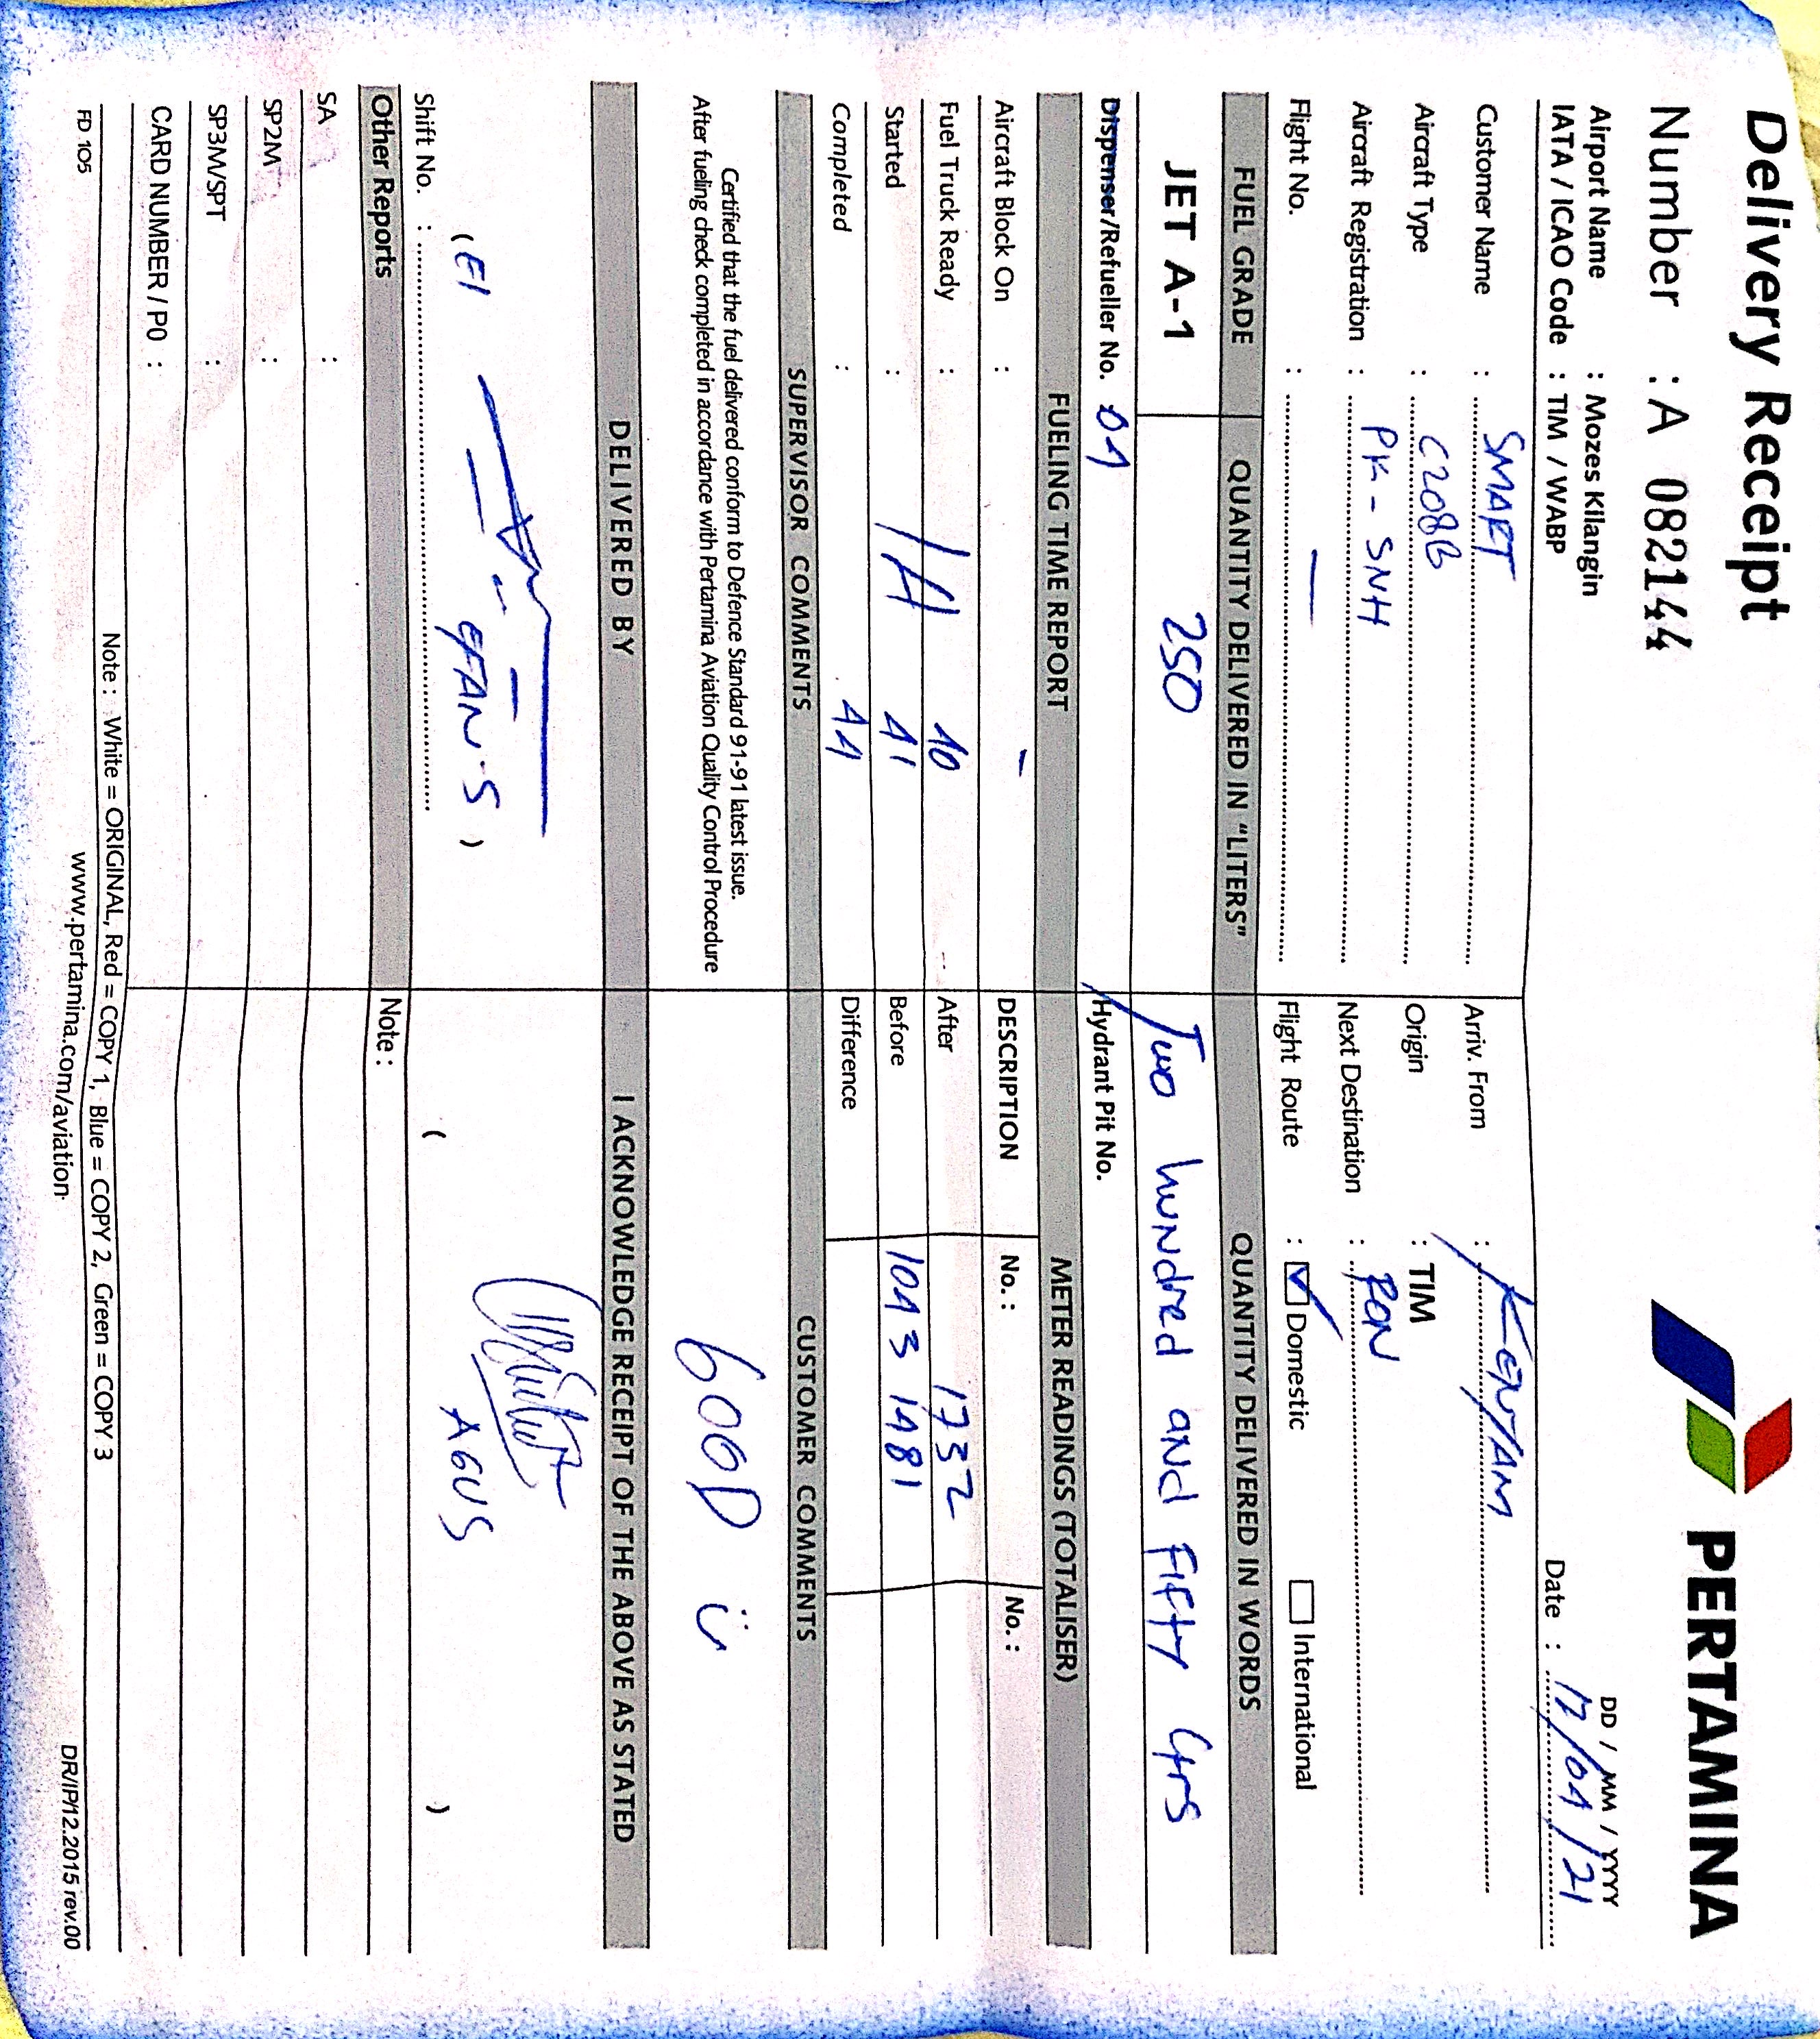 Delivery Receipt
Number : A 082144
PERTAMINA
Airport Name : Mozes Kilangin
IATA / ICAO Code : TIM / WABP
DD / MM / YYYY
Date : 12/04/21
Customer Name : SMART
Aircraft Type : C208B
Aircraft Registration : PK - SNH
Flight No. : —
Arriv. From :
Origin : TIM
Next Destination : RON
Flight Route : Domestic International
FUEL GRADE
QUANTITY DELIVERED IN "LITERS"
QUANTITY DELIVERED IN WORDS
JET A-1
250
Two hundred and Fifty Ltrs
Dispenser/Refueller No. 04
Hydrant Pit No.
FUELING TIME REPORT
METER READINGS (TOTALISER)
Aircraft Block On : -
DESCRIPTION No. : No. :
Fuel Truck Ready : 14 40
After 1732
Started : 41
Before 1043 1481
Completed : 44
Difference
SUPERVISOR COMMENTS
CUSTOMER COMMENTS
Certified that the fuel delivered conform to Defence Standard 91-91 latest issue.
After fueling check completed in accordance with Pertamina Aviation Quality Control Procedure
GOOD
DELIVERED BY
I ACKNOWLEDGE RECEIPT OF THE ABOVE AS STATED
( EFAN S )
( AGUS )
Shift No. :
Other Reports
Note :
SA :
SP2M :
SP3M/SPT :
CARD NUMBER / P0 :
Note : White = ORIGINAL, Red = COPY 1, Blue = COPY 2, Green = COPY 3
FD 105
www.pertamina.com/aviation
DR/IP/12.2015 rev.00